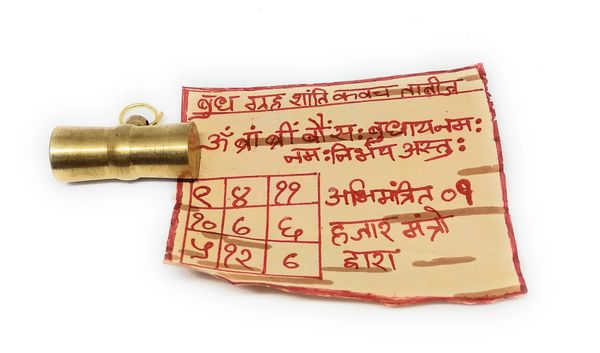 बुध ग्रह शांति कवच ताबीज
ॐ ब्रां ब्रीं ब्रौं सः बुधाय नमः
नमः निर्भय अस्तुः
९ ४ ११
१० ७ ६
५ १२ ७
अभिमंत्रित ०१
हजार मंत्रो
द्वारा